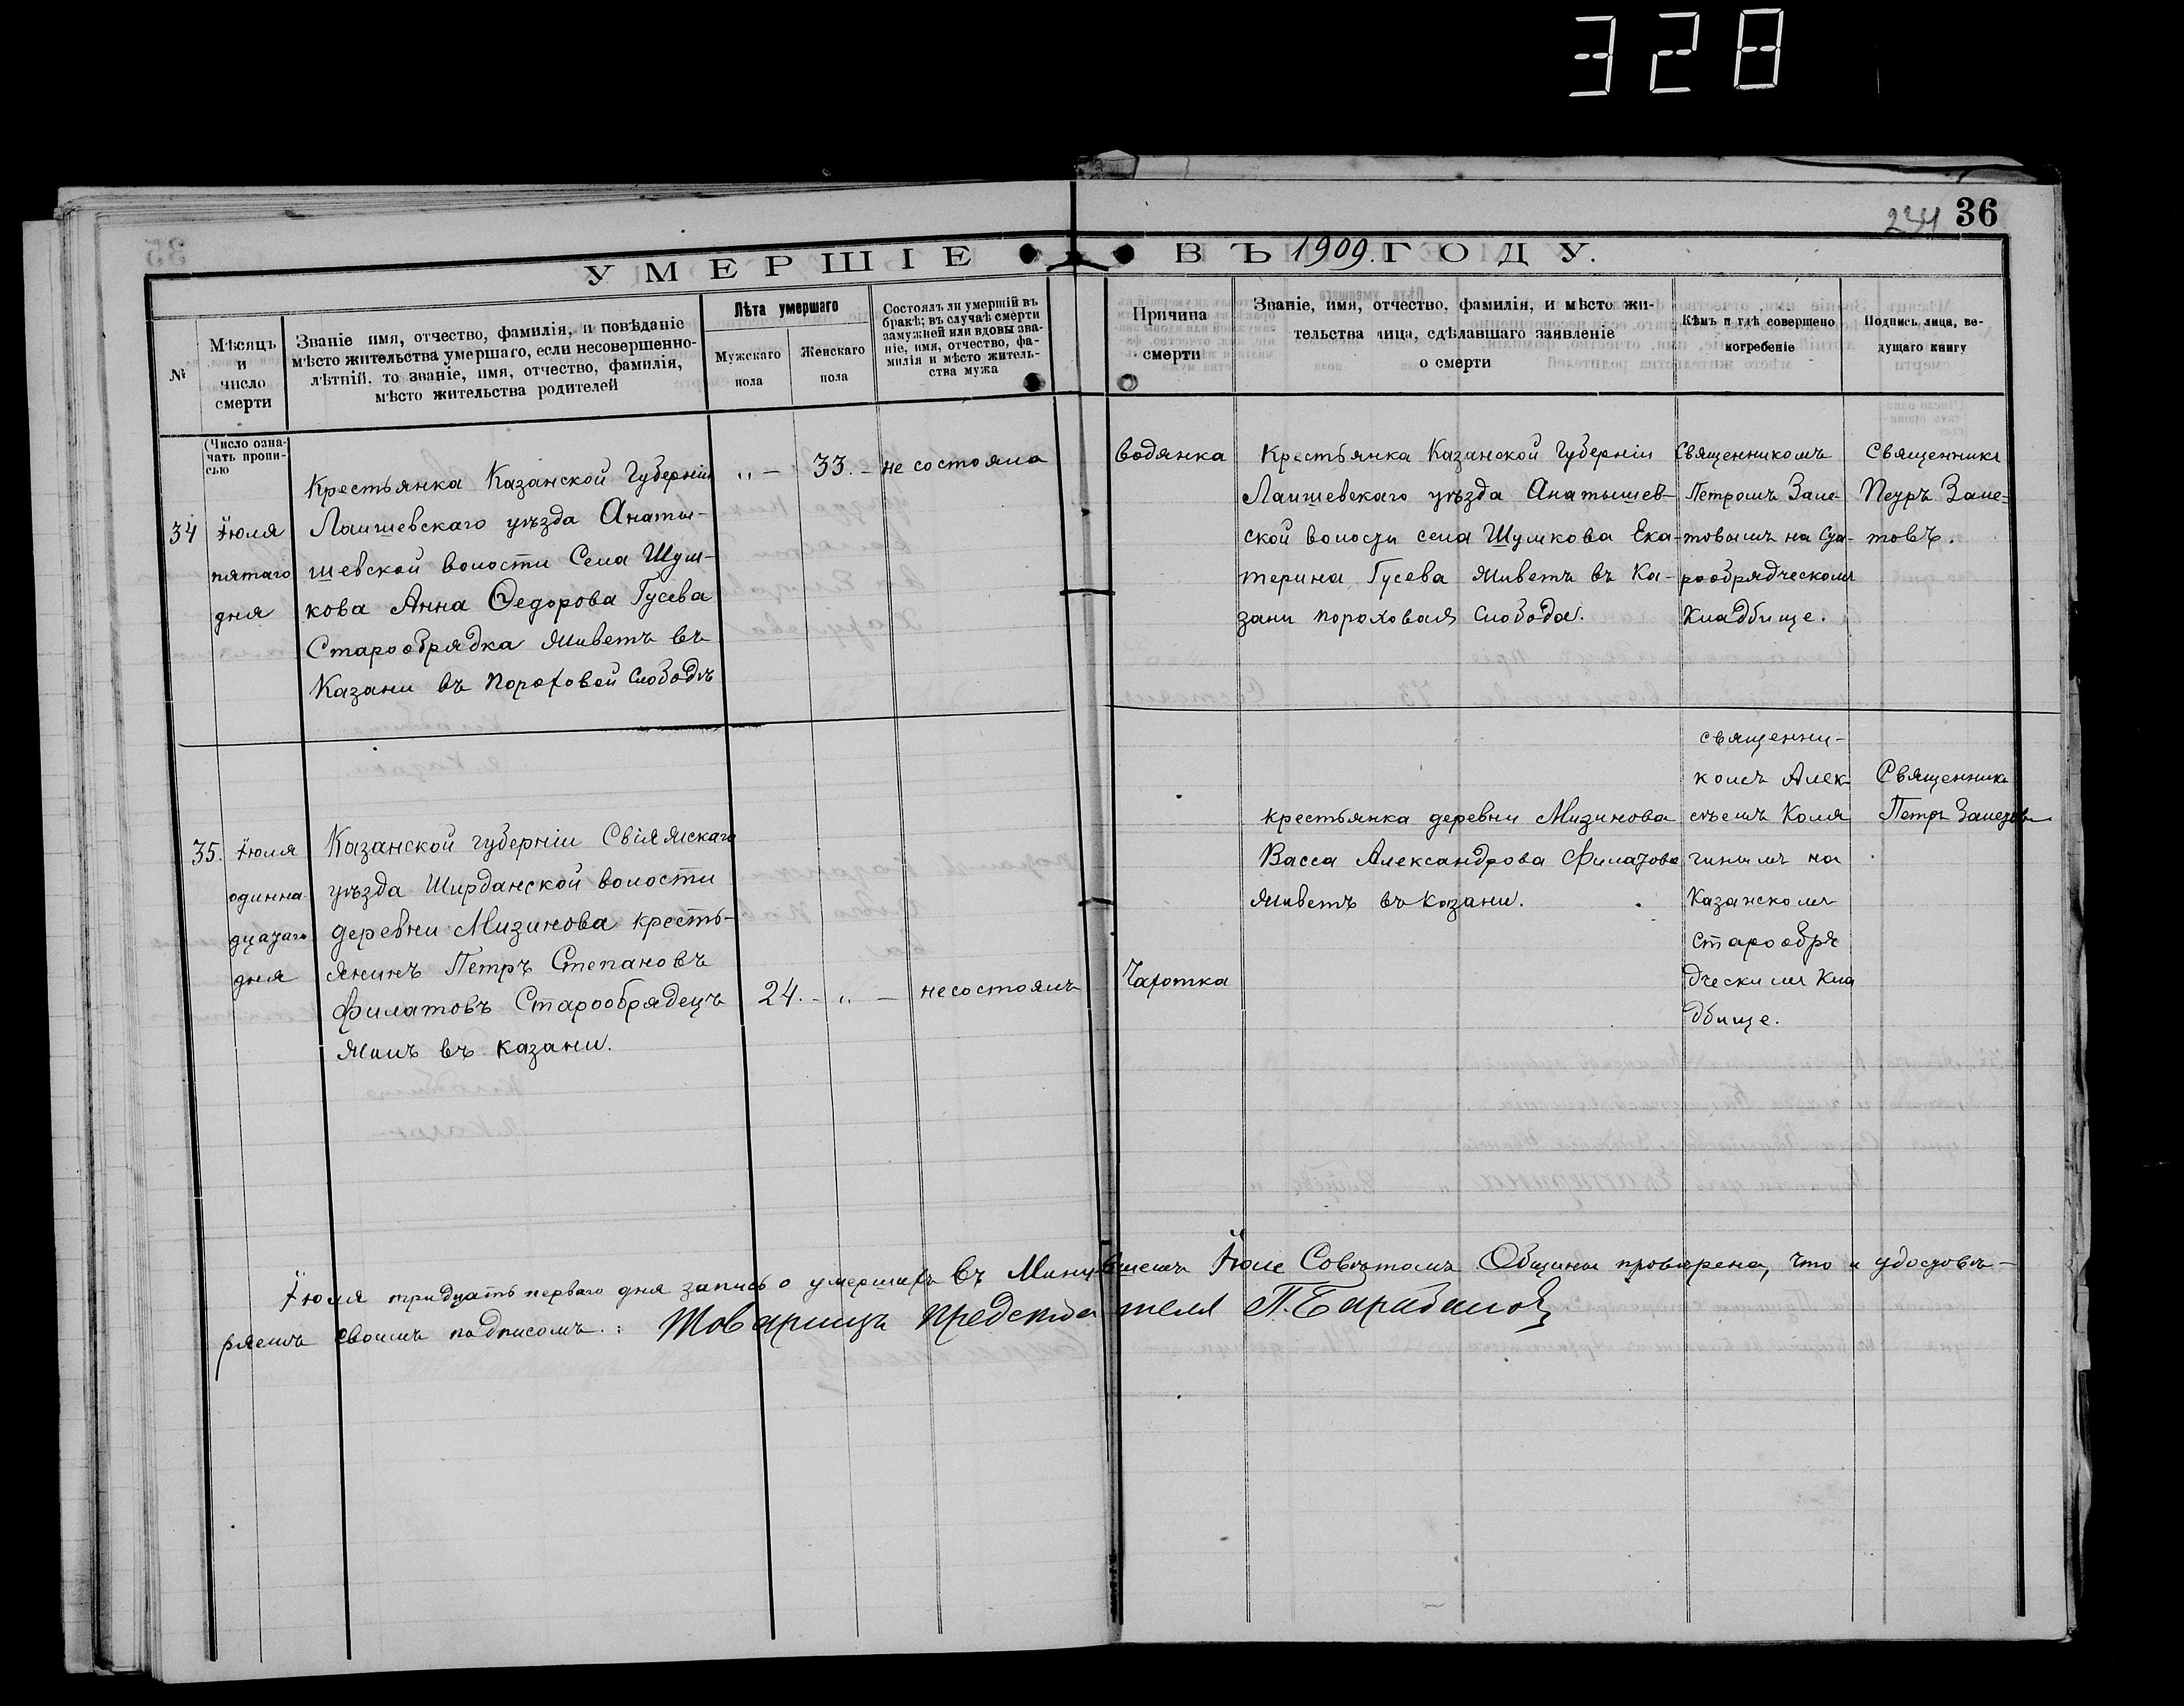 328
234 36
УМЕРШІЕ ВЪ 1909. ГОДУ.
№
Мѣсяцъ
и
число
смерти
Званіе имя, отчество, фамилія, и повѣданіе
мѣсто жительства умершаго, если несовершенно-
лѣтній, то званіе, имя, отчество, фамилія,
мѣсто жительства родителей
Лѣта умершаго
Мужскаго
пола
Женскаго
пола
Состоялъ ли умершій въ
бракѣ; въ случаѣ смерти
замужней или вдовы зва-
ніе, имя, отчество, фа-
милія и мѣсто житель-
ства мужа
Причина
смерти
Званіе, имя, отчество, фамилія, и мѣсто жи-
тельства лица, сдѣлавшаго заявленіе
о смерти
Кѣмъ и гдѣ совершено
погребеніе
Подпись лица, ве-
дущаго книгу
(Число озна-
чать пропи-
сью
34
Іюля
пятаго
дня
Крестьянка Казанской Губерніи
Лаишевскаго уѣзда Анаты-
шевской волости Села Шум-
кова Анна Ѳедорова Гусева
Старообрядка живетъ въ
Казани въ пороховой слободѣ
„ –
33. –
не состояла
водянка
Крестьянка Казанской Губерніи
Лаишевскаго уѣзда Анатышев-
ской волости села Шумкова Ека-
терина Гусева живетъ въ Ка-
зани пороховая слобода.
Священникомъ
Петромъ Зале-
товымъ на Ста-
рообрядческомъ
Кладбище.
Священникъ
Петръ Зале-
товъ.
35.
Іюля
одинна-
дцатаго
дня
Казанской губерніи Свіяжскаго
уѣзда Ширданской волости
деревни Мизинова кресть-
янинъ Петръ Степановъ
Филатовъ Старообрядецъ
жилъ въ Казани.
24. –
„ –
несостоялъ
Чахотка
крестьянка деревни Мизинова
Васса Александрова Филатова
живетъ въ Казани.
священни-
комъ Алек-
сѣемъ Коля
гинымъ на
Казанскомъ
старообря
дческимъ Кла
дбище.
Священникъ
Петръ Залетовъ
Іюля тридцать перваго дня запись о умершихъ въ Минувшемъ Іюле Совѣтомъ Общины проверена, что и удостовѣ-
ряемъ своимъ подписомъ: Товарищъ председателя П. Барабановъ